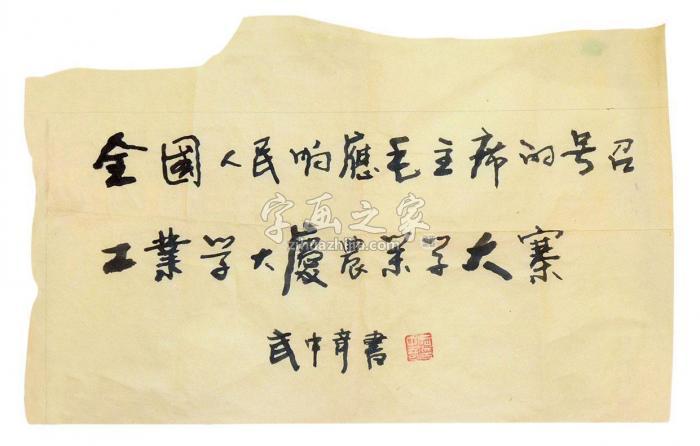 全國人民响應毛主席的号召
字画之家
zihuazhijia.com
工業学大慶農業学大寨
武中奇書